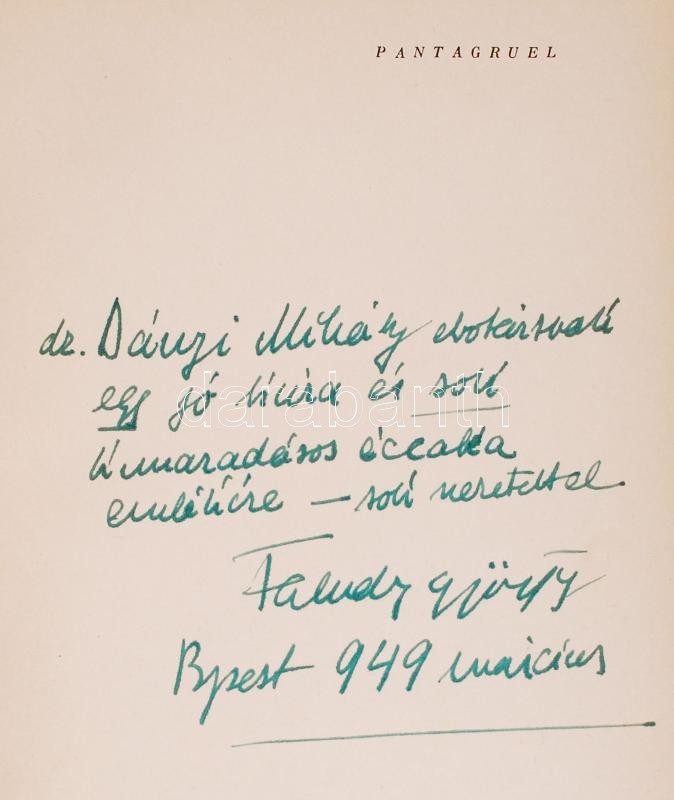 PANTAGRUEL
dr. Dányi Mihály
egy jó túra és sok
kimaradásos éccaka
emlékére – sok szeretettel
Faludy György
Bpest 949 március
darabanth